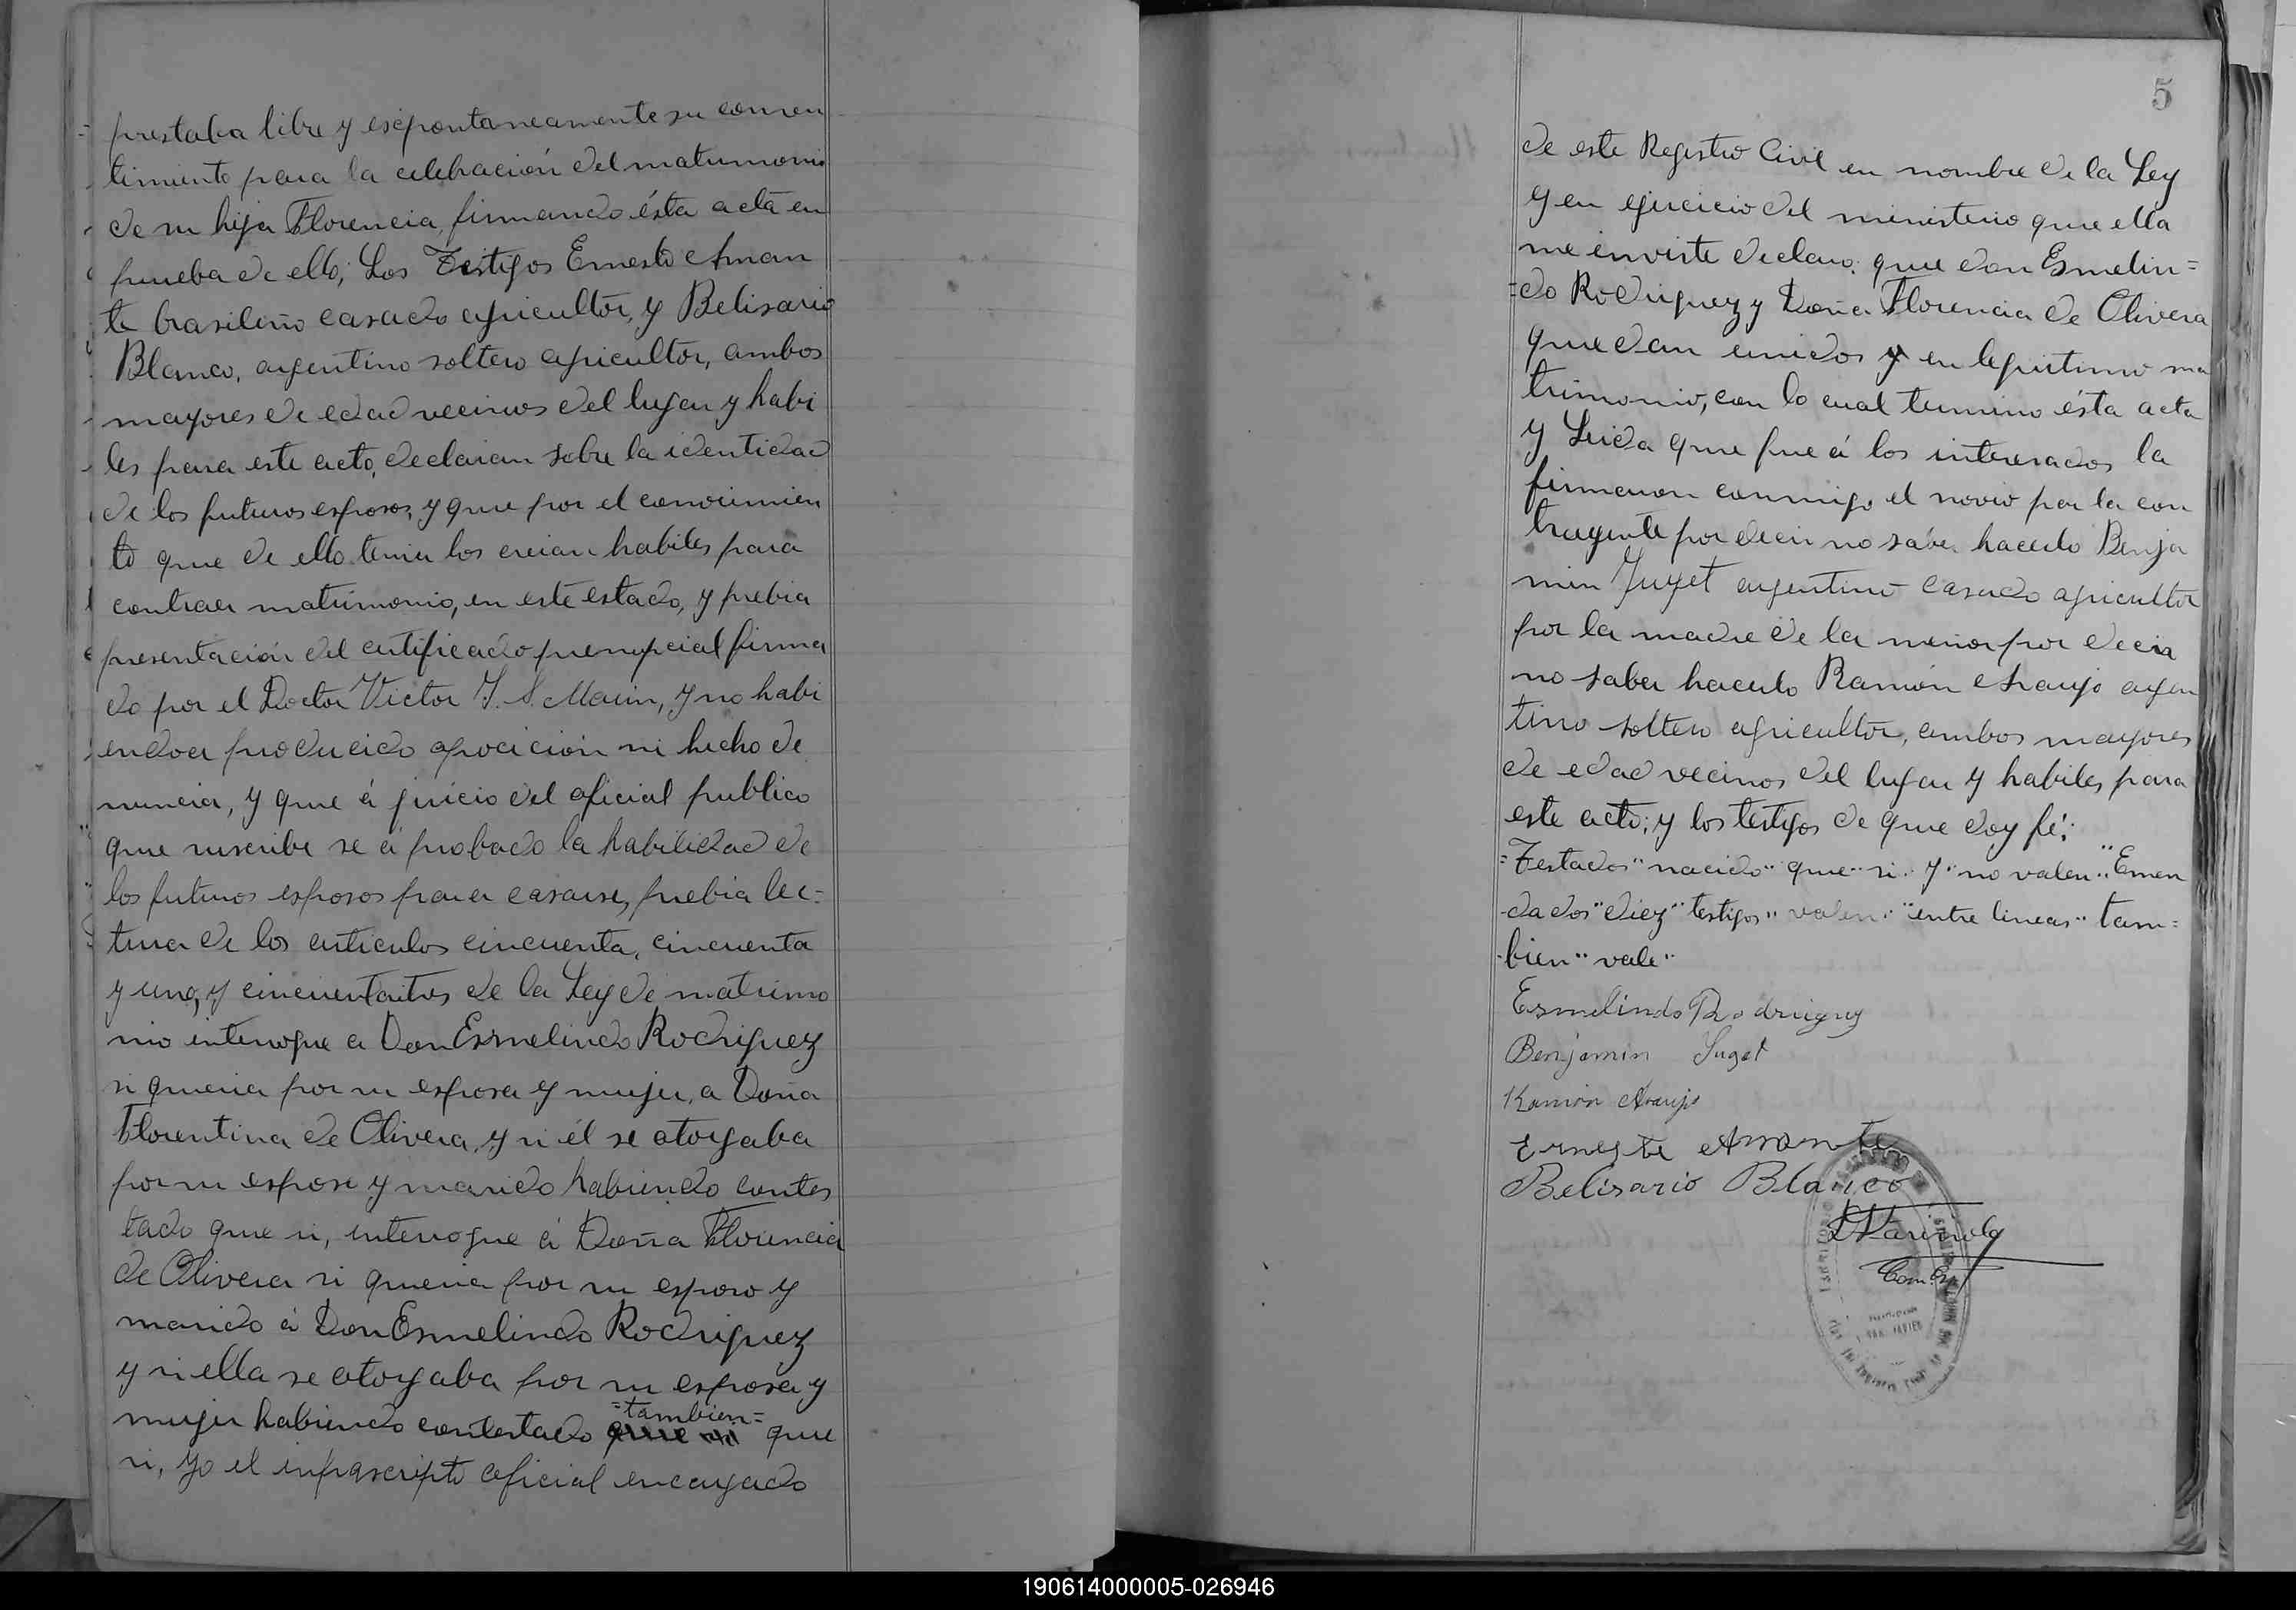 prestaba libre y esepontaneamente su comen
timiento para la celebración del matrimonio
de su hija Florencia, firmando ésta acta en
prueba de ello; Los Testigos Ernesto Aman
te brasileño casado agricultor, y Belisario
Blanco, argentino soltero agricultor, ambos
mayores de edad vecinos del lugar y habi
les para este acto, declaran sobre la identidad
de los futuros esposos, y que por el conocimien
to que de ello tenia los creian habiles para
contraer matrimonio, en este estado, y prebia
presentación del certificado prenupcial firma
do por el Doctor Victor J. S. Marin, y no habi
endoce producido oposición ni hecho de
nuncia, y que á juicio del oficial publico
que suscribe se á probado la habilidad de
los futuros esposos para casarse, prebia lec=
tura de los articulos cincuenta, cincuenta
y uno, y cincuentaitres de la Ley de matrimo
nio interrogue a Don Esmelindo Rodriguez
si queria por su esposa y mujer, a Doña
Florentina de Olivera, y si él se otorgaba
por su esposo y marido habiendo contes
tado que si, interrogue á Doña Florencia
de Olivera si queria por su esposo y
marido á Don Esmelindo Rodriguez
y si ella se otorgaba por su esposa y
=tambien=
mujer habiendo contestado que si que
si, yo el infrascripto oficial encargado
5
de este Registro Civil en nombre de la Ley
y en ejercicio del ministerio que ella
me inviste declaro: que don Esmelin=
=do Rodriguez y Doña Florencia de Olivera
quedan unidos y en legitimo ma
trimonio, con lo cual termino ésta acta
y Leida que fue á los interesados la
firmaron conmigo, el novio por la con
trayente por decir no saber hacerlo Benja
min Juget argentino casado agricultor
por la madre de la menor por decir
no saber hacerlo Ramón Araujo argen
tino soltero agricultor, ambos mayores
de edad vecinos del lugar y habiles para
este acto; y los testigos de que doy fé;
=Testados" nacido" que" si" y" no valen" "Emen
dados "diez" testigos" valen" "entre lineas" tam=
bien" vale"
Esmelindo Rodriguez
Benjamin Juget
Ramón Araujo
Erneste Amante
Belisario Blanco
SAN JAVIER
190614000005-026946